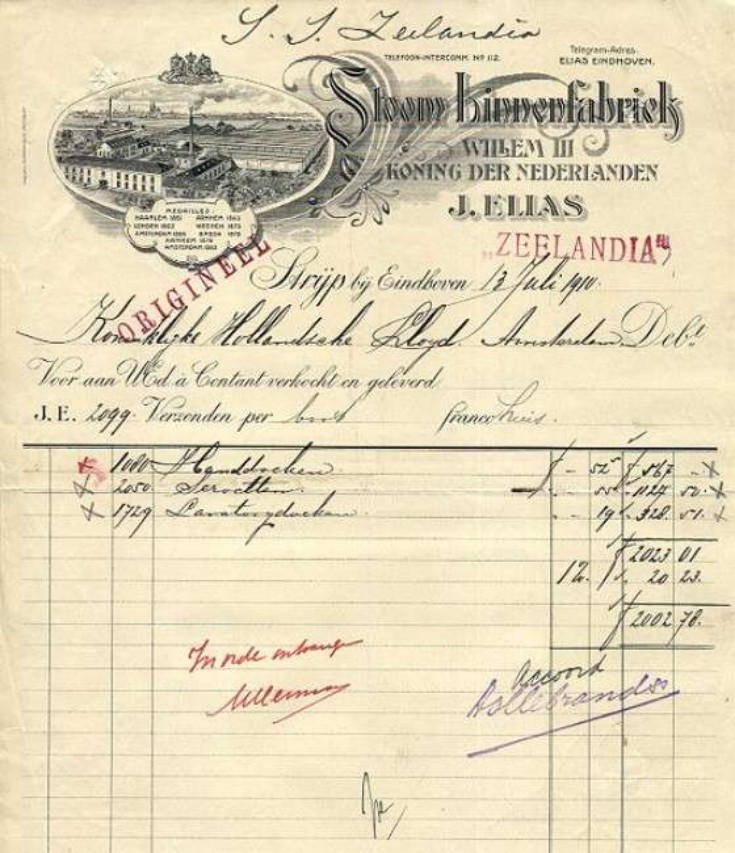 S. S. Zeelandia
TELEFOON-INTERCOMM. Nº 112.
Telegram-Adres.
ELIAS EINDHOVEN.
Stoom Linnenfabriek
WILLEM III
KONING DER NEDERLANDEN
J. ELIAS
MEDAILLES:
HAARLEM 1861 ARNHEM 1868
LONDEN 1862 WEENEN 1873
AMSTERDAM 1866 BREDA 1878
ARNHEM 1879
AMSTERDAM 1883
ORIGINEEL
„ZEELANDIA"
Strijp bij Eindhoven 13 Juli 1910.
Koninklijke Hollandsche Lloyd Amsterdam Debt.
Voor aan UEd. à Contant verkocht en geleverd
J.E. 2099. Verzonden per boot franco huis.
1080 Handdoeken f - 52⁵ f 567 -
2050 Servetten - 55 - 1127 50.
1729 Lavatorydoeken - 19 - 328. 51.
f 2023 01
1%. 20 23.
f 2002 78.
In orde ontvangen
Accoord